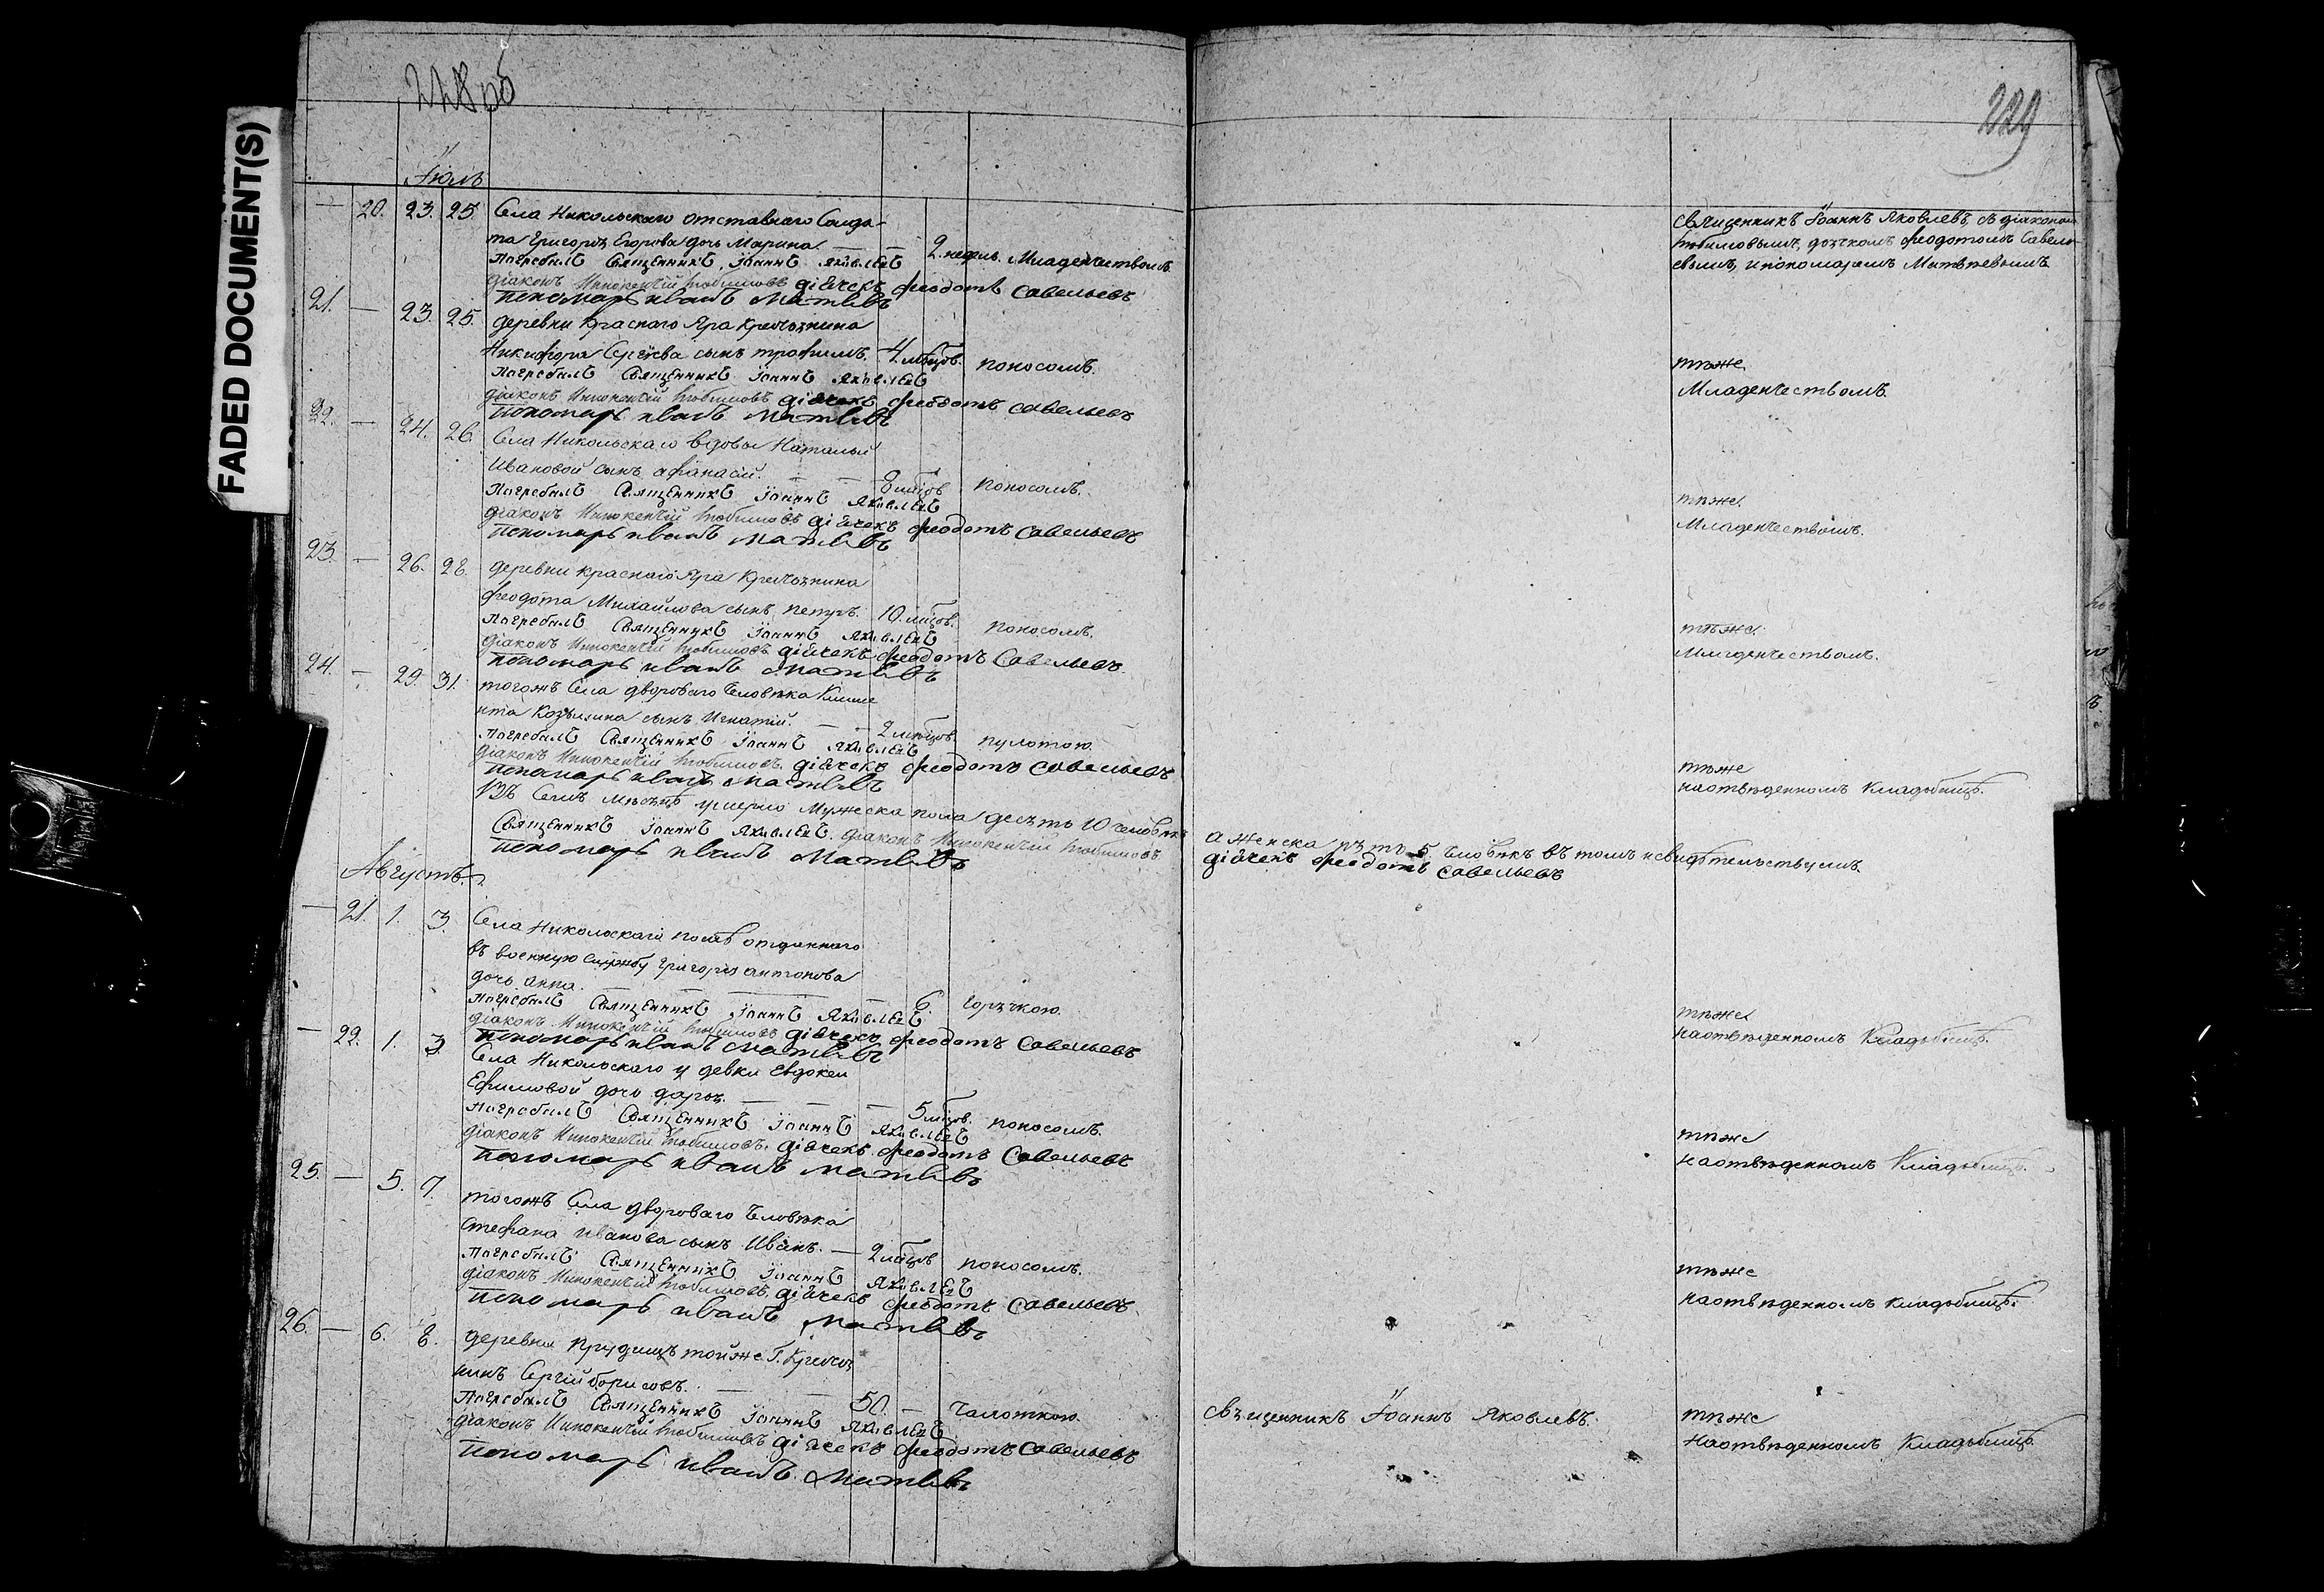 228об
FADED DOCUMENT(S)
Іюль
— 20. 23. 25. Села Никольскаго отставнаго Солда-
та Григорія Егорова дочь Марина — — 2. недѣль. Младенчествомъ.
Погребалъ Священникъ Іоаннъ Яковлевъ
діаконъ Иннокентій Любимовъ дІячекъ Феодотъ Савельевъ
пономарь иванъ Матвѣевъ
21. — 23. 25. деревни Краснаго Яра Крестьянина
Никифора Сергѣева сынъ трофимъ. 4 мѣсцов. поносомъ.
Погребалъ Священникъ Іоаннъ Яковлевъ
діаконъ Иннокентій Любимовъ дІячекъ Феодотъ Савельевъ
пономарь иванъ Матвѣевъ
22. — 24. 26. Села Никольскаго вдовы Натальи
Ивановой сынъ афанасій. — — 8 мѣсцов поносомъ.
Погребалъ Священникъ Іоаннъ Яковлевъ
діаконъ Иннокентій Любимовъ дІячекъ Феодотъ Савельевъ
пономарь иванъ Матвѣевъ
23. — 26. 28. деревни краснаго Яра Крестьянина
Феодота Михайлова сынъ петръ. 10. мѣсцов. поносомъ.
Погребалъ Священникъ Іоаннъ Яковлевъ
діаконъ Иннокентій Любимовъ дІячекъ Феодотъ Савельевъ
пономарь иванъ Матвѣевъ
24. — 29. 31. тогожъ Села двороваго Человѣка Климе
нта сынъ Игнатій. — — 2 мѣсцов.
Погребалъ Священникъ Іоаннъ Яковлевъ
діаконъ Иннокентій Любимовъ. дІячекъ Феодотъ Савельевъ
пономарь иванъ Матвѣевъ
Въ Семъ Мѣсяцѣ умерло Мужеска пола десять 10 человѣкъ
Священникъ Іоаннъ Яковлевъ. діаконъ Иннокентій Любимовъ
пономарь иванъ Матвѣевъ
Августъ.
— 21. 1. 3. Села Никольскаго отданнаго
въ военную службу Григорія антонова
дочь анна. — — — 6. горячкою.
Погребалъ Священникъ Іоаннъ Яковлевъ
діаконъ Иннокентій Любимовъ дІячекъ Феодотъ Савельевъ
пономарь иванъ Матвѣевъ
— 22. 1. 3. Села Никольскаго у девки Евдокеи
Ефимовой дочь дарья. — — — 5 мѣсцов. поносомъ.
Погребалъ Священникъ Іоаннъ Яковлевъ
діаконъ Иннокентій Любимовъ. дІячекъ Феодотъ Савельевъ
пономарь иванъ Матвѣевъ
25. — 5. 7. тогожъ Села двороваго Человѣка
Стефана иванова сынъ Иванъ. — 2 мѣсцов поносомъ.
Погребалъ Священникъ Іоаннъ Яковлевъ
діаконъ Иннокентій Любимовъ дІячекъ Феодотъ Савельевъ
пономарь иванъ Матвѣевъ
26. — 6. 8. деревни Прудищъ тойже Г. Крестья
нинъ Сергій борисовъ. — — 50. — чахоткою.
Погребалъ Священникъ Іоаннъ Яковлевъ
діаконъ Иннокентій Любимовъ дІячекъ Феодотъ Савельевъ
пономарь иванъ Матвѣевъ
229
священникъ Іоаннъ Яковлевъ, съ діакономъ
Любимовымъ, дьячкомъ Феодотомъ Савель
евымъ, и пономаремъ Матвѣевымъ
тѣже
Младенчествомъ.
тѣже.
Младенчествомъ.
тѣже.
Младенчествомъ.
тѣже
на отведенномъ Кладбищѣ.
а женска пять 5. человѣкъ въ томъ и свидѣтельствуемъ.
дІячекъ Феодотъ Савельевъ
тѣже
на отведенномъ Кладбищѣ.
тѣже
на отведенномъ Кладбищѣ.
тѣже
на отведенномъ кладбищѣ.
священникъ Іоаннъ Яковлевъ. тѣже
На отведенномъ Кладбищѣ.